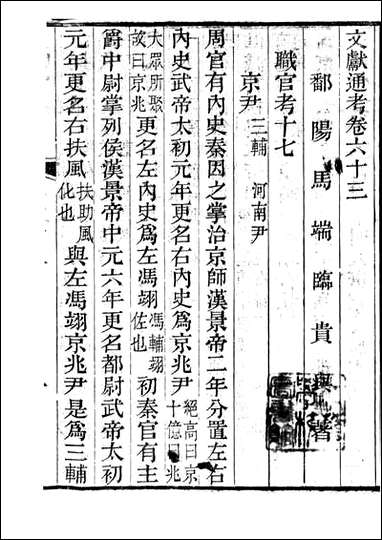 文獻通考卷六十三
鄱陽馬端臨貴與著
職官考十七
京尹 三輔 河南尹
周官有內史秦因之掌治京師漢景帝二年分置左右
內史武帝太初元年更名右內史為京兆尹 絕高曰京 十億曰兆
大眾所聚 故曰京兆 更名左內史為左馮翊 馮輔翊 佐也 初秦官有主
爵中尉掌列侯漢景帝中元六年更名都尉武帝太初
元年更名右扶風 扶助風 化也 與左馮翊京兆尹是為三輔